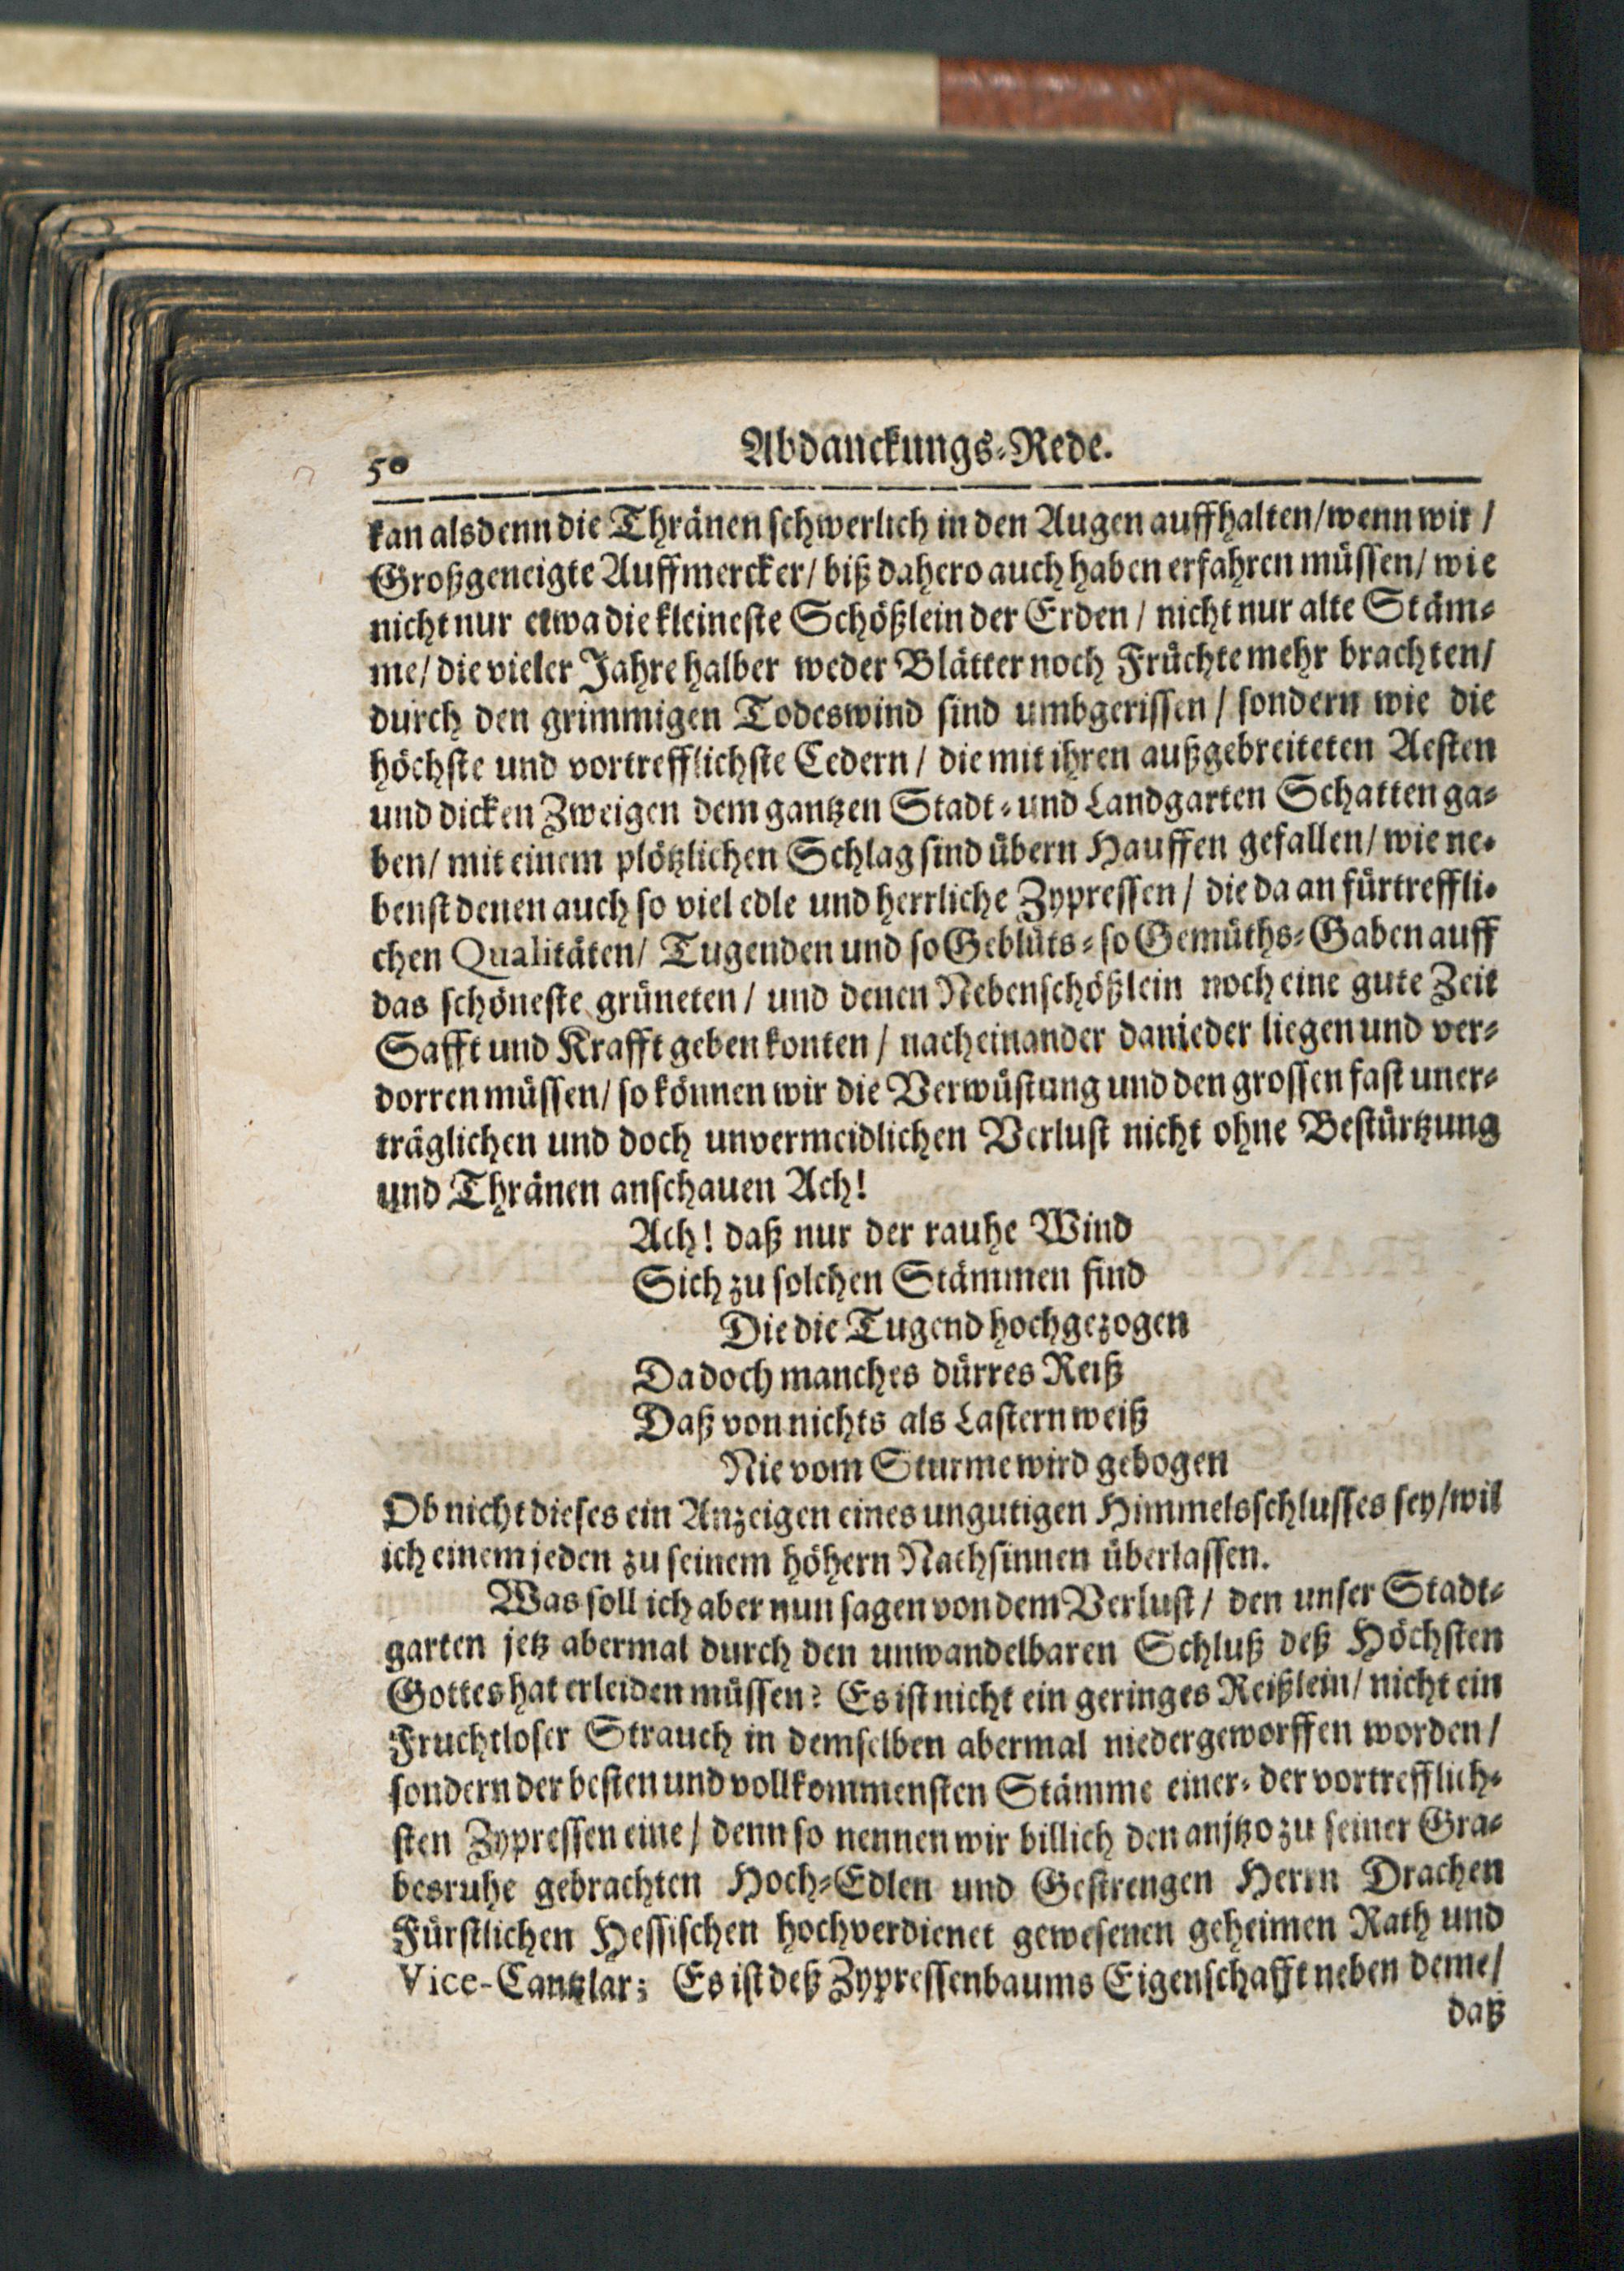 50 Abdanckungs-Rede.
kan alsdenn die Thränen schwerlich in den Augen auffhalten/wenn wir/
Großgeneigte Auffmercker/ biß dahero auch haben erfahren müssen/ wie
nicht nur etwa die kleineste Schößlein der Erden/ nicht nur alte Stäm-
me/ die vieler Jahre halber weder Blätter noch Früchte mehr brachten/
durch den grimmigen Todeswind sind umbgerissen/ sondern wie die
höchste und vortrefflichste Cedern/ die mit ihren außgebreiteten Aesten
und dicken Zweigen dem gantzen Stadt- und Landgarten Schatten ga-
ben/ mit einem plötzlichen Schlag sind übern Hauffen gefallen/ wie ne-
benst denen auch so viel edle und herrliche Zypressen/ die da an fürtreffli-
chen Qualitäten/ Tugenden und so Geblüts- so Gemüths-Gaben auff
das schöneste grüneten/ und denen Nebenschößlein noch eine gute Zeit
Safft und Krafft geben konten/ nach einander danieder liegen und ver-
dorren müssen/ so können wir die Verwüstung und den grossen fast uner-
träglichen und doch unvermeidlichen Verlust nicht ohne Bestürtzung
und Thränen anschauen Ach!
Ach! daß nur der rauhe Wind
Sich zu solchen Stämmen find
Die die Tugend hochgezogen
Da doch manches dürres Reiß
Daß von nichts als Lastern weiß
Nie vom Sturme wird gebogen
Ob nicht dieses ein Anzeigen eines ungutigen Himmelsschlusses sey/wil
ich einem jeden zu seinem höhern Nachsinnen überlassen.
Was soll ich aber nun sagen von dem Verlust/ den unser Stadt-
garten jetz abermal durch den unwandelbaren Schluß deß Höchsten
Gottes hat erleiden müssen? Es ist nicht ein geringes Reißlein/ nicht ein
Fruchtloser Strauch in demselben abermal niedergeworffen worden/
sondern der besten und vollkommensten Stämme einer- der vortrefflich-
sten Zypressen eine/ denn so nennen wir billich den anjtzo zu seiner Gra-
besruhe gebrachten Hoch-Edlen und Gestrengen Herrn Drachen
Fürstlichen Hessischen hochverdienet gewesenen geheimen Rath und
Vice-Cantzlar; Es ist deß Zypressenbaums Eigenschafft neben deme/
daß